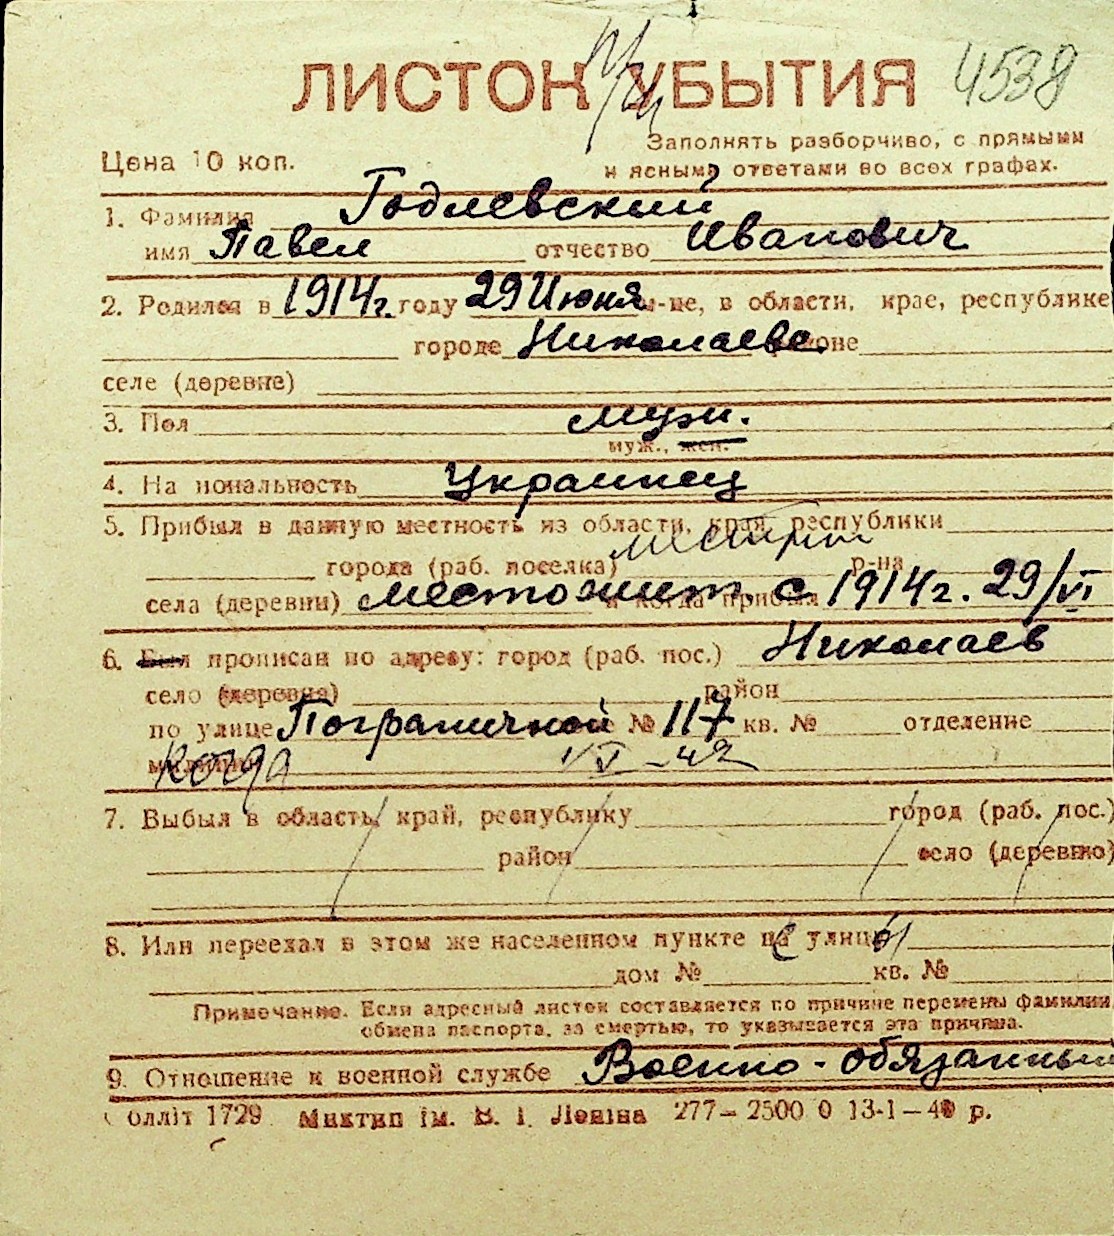 ЛИСТОК УБЫТИЯ 4538
Заполнять разборчиво, с прямыми
Цена 10 коп. и ясными ответами во всех графах.
1. Фамилия Годлевский
имя Павел отчество Иванович
2. Родился в 1914г. году 29 Июня м-це, в области, крае, республике
городе Николаеве районе
селе (деревне)
3. Пол муж.
муж., жен.
4. Национальность Украинец
5. Прибыл в данную местность из области, края, республики
города (раб. поселка) р-на
села (деревни) местожит. с и когда прибыл 1914г. 29/VI
6. Был прописан по адресу: город (раб. пос.) Николаев
село (деревня) район
по улице Пограничной № 117 кв. № отделение
милиции когда VI-42
7. Выбыл в область, край, республику город (раб. пос.)
район село (деревню)
8. Или переехал в этом же населенном пункте на улицу
дом № кв. №
Примечание. Если адресный листок составляется по причине перемены фамилии,
обмена паспорта, за смертью, то указывается эта причина.
9. Отношение к военной службе Военно-обязанный
Облліт 1729 Миктип ім. В. І. Леніна 277—2500 0 13-1—40 р.